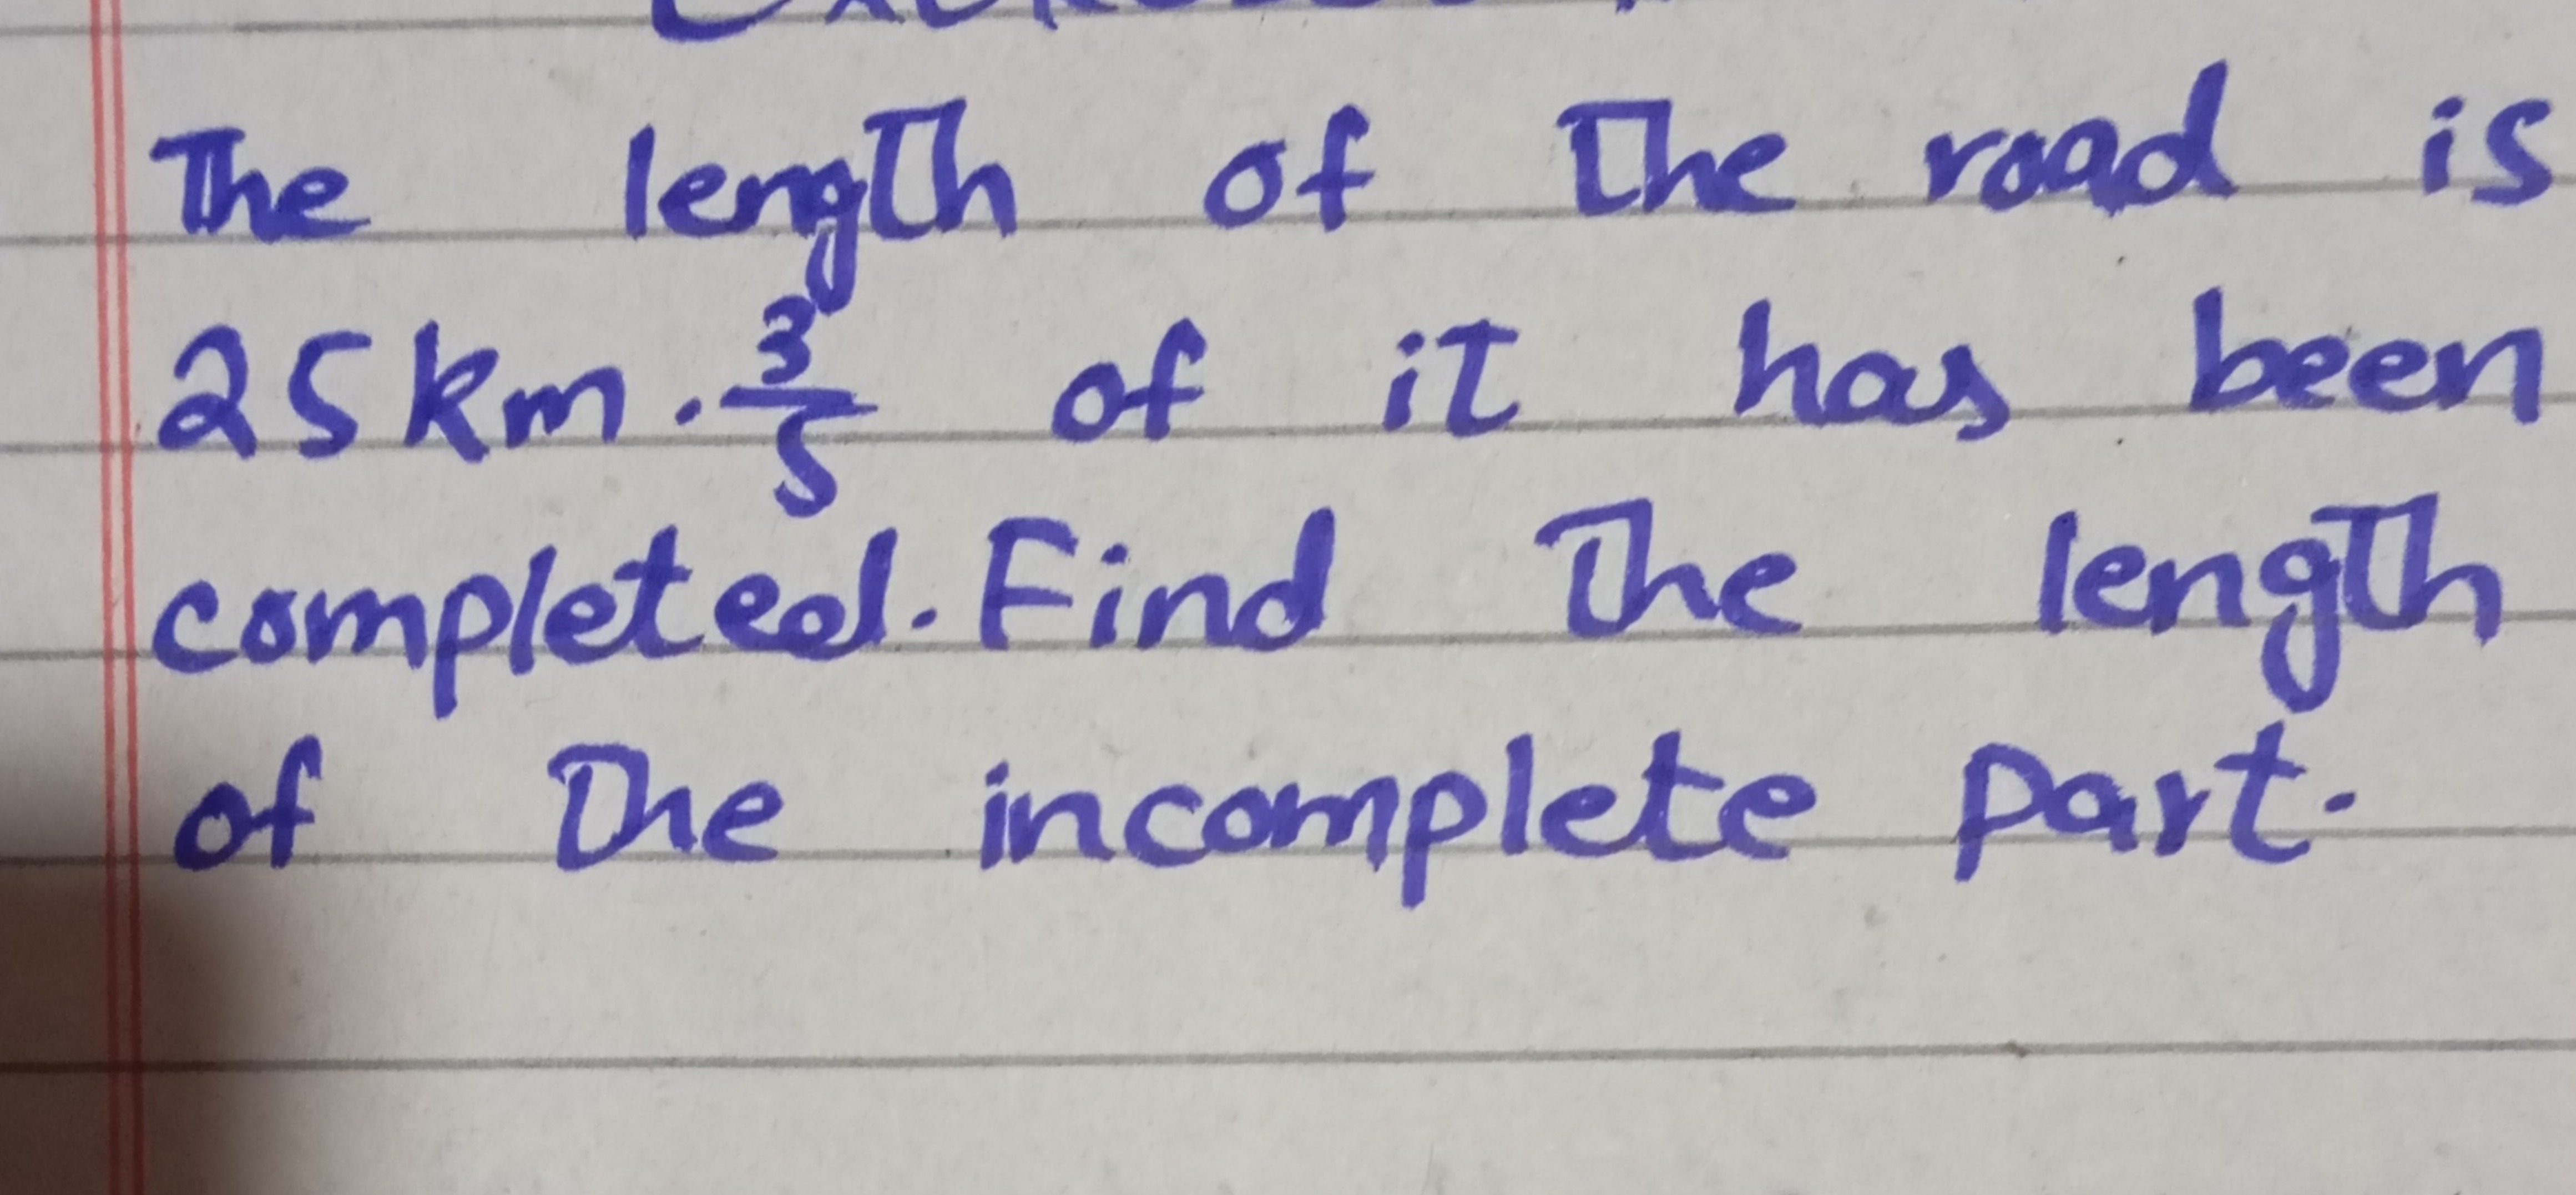 The length of the road is
25 km. 3/5 of it has been
completed. Find the length
of the incomplete part.